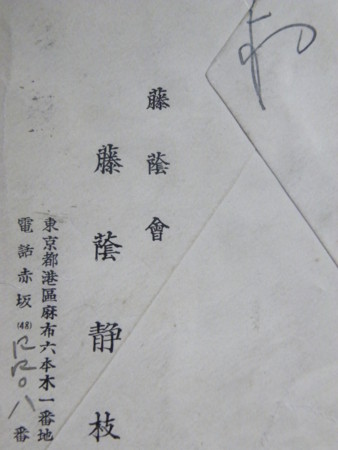 藤蔭會
藤蔭静枝
東京都港區麻布六本木一番地
電話赤坂(48)番